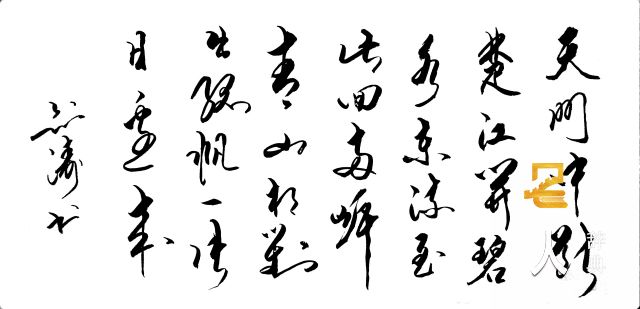 天門中斷
楚江開碧
水東流至
此回兩岸
青山相對
出孤帆一片
日邊來